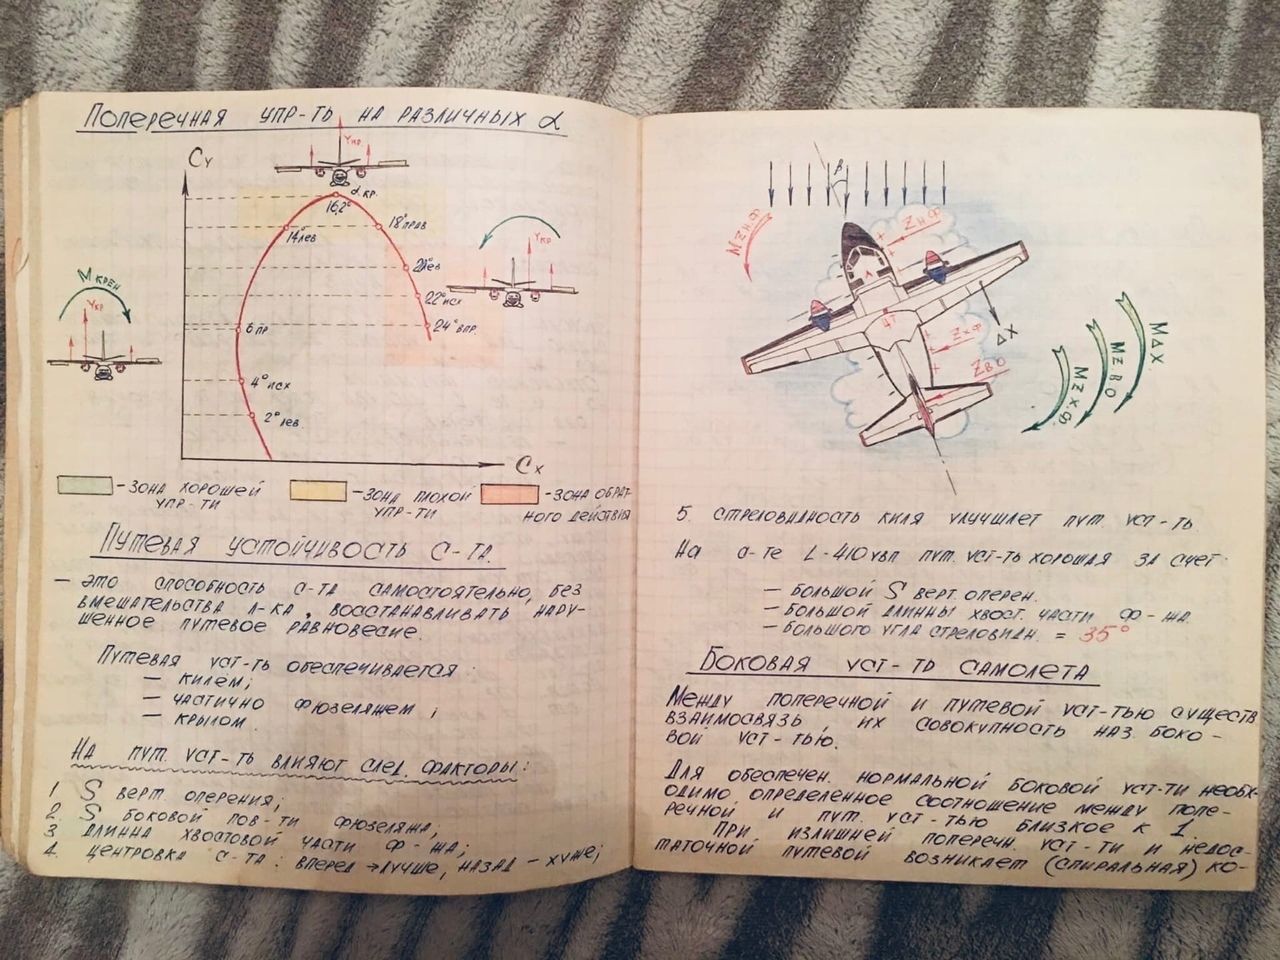 Поперечная упр-ть на различных α
Cy
Yкр
α кр.
16,2°
14° лев
18° прав
Yкр
Mкрен
Yкр
22° исх
6 пр
24° впр.
4° исх
2° лев
Cx
- зона хорошей
упр-ти
- зона плохой
упр-ти
- зона обрат-
ного действия
Путевая устойчивость с-та.
— это способность с-та самостоятельно, без
вмешательства л-ка, восстанавливать нару-
шенное путевое равновесие.
Путевая уст-ть обеспечивается:
— килем;
— частично фюзеляжем;
— крылом.
На пут. уст-ть влияют след. факторы:
1 S верт. оперения;
2. S боковой пов-ти фюзеляжа;
3 длинна хвостовой части ф-жа;
4. центровка с-та: вперед → лучше, назад — хуже;
β
MZн.ф
Zн.ф
ΔX
Zх.ф
Zво
MΔX
MZво
MZх.ф.
5. стреловидность киля улучшает пут. уст-ть
На с-те L-410 увп пут. уст-ть хорошая за счет:
— большой S верт. оперен.
— большой длинны хвост. части ф-жа
— большого угла стреловидн. = 35°
Боковая уст-ть самолета
Между поперечной и путевой уст-тью существ
взаимосвязь, их совокупность наз. боко-
вой уст-тью.
Для обеспечен. нормальной боковой уст-ти необх-
одимо определенное соотношение между попе-
речной и пут. уст-тью близкое к 1.
При излишней поперечн. уст-ти и недос-
таточной путевой возникает (спиральная) ко-